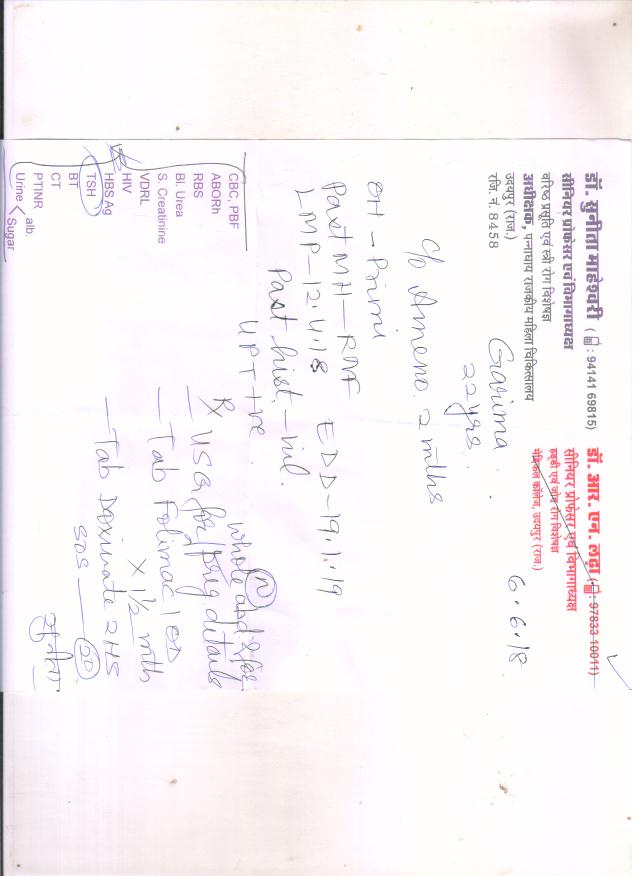 डॉ. सुनीता माहेश्वरी ( : 94141 69815)
सीनियर प्रोफेसर एवं विभागाध्यक्ष
वरिष्ठ प्रसूति एवं स्त्री रोग विशेषज्ञ
अधीक्षक, पन्नाधाय राजकीय महिला चिकित्सालय
उदयपुर (राज.)
रजि. नं. 8458
डॉ. आर. एन. लढ़ा ( : 97833 10011)
सीनियर प्रोफेसर एवं विभागाध्यक्ष
हड्डी एवं जोड़ रोग विशेषज्ञ
मेडिकल कॉलेज, उदयपुर (राज.)
Garima
22 yrs.
6.6.18
c/o Ameno. 2 mths
OH - Primi
Past MH - RNF
LMP - 12.4.18 EDD - 19.1.19
Past hist. - nil.
UPT +ve.
whole abd & for
℞ USG for preg details
- Tab Folimac 1 OD
x 1½ mth
- Tab Doxinate 2 HS
SOS
CBC, PBF
ABORh
RBS
Bl. Urea
S. Creatinine
VDRL
HIV
HBS Ag
TSH
BT
CT
PTINR
Urine < alb.
Sugar